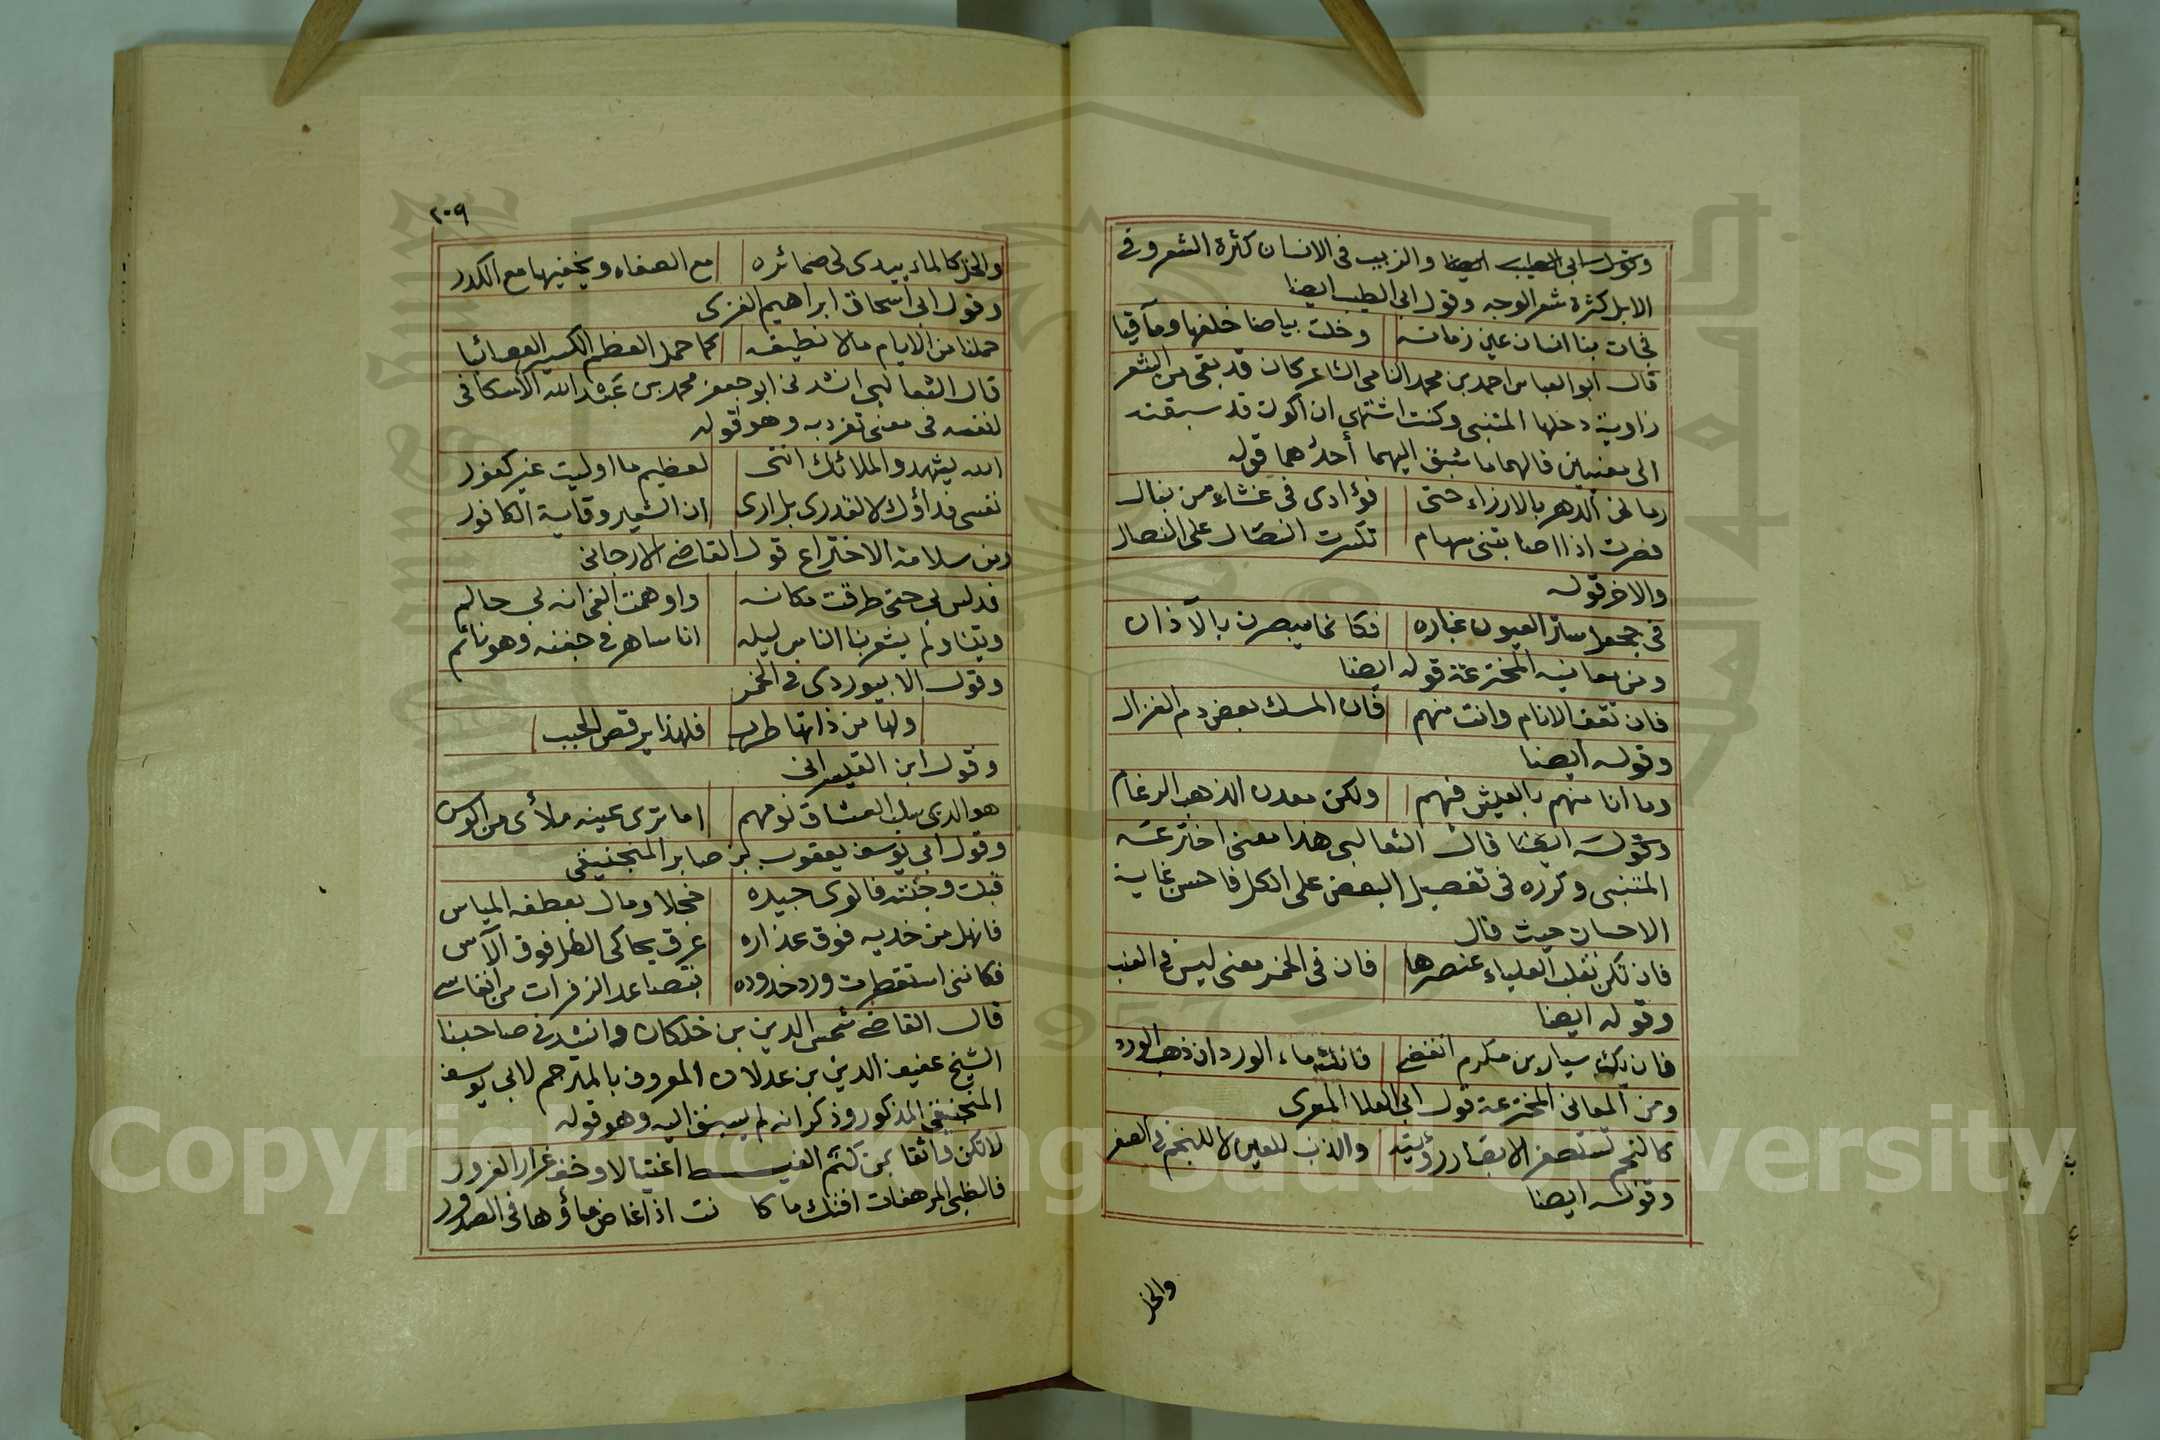 وقول ابي الطيب ايضا والزبب في الانسان كثرة الشعر وفي
الابل كثرة شعر الوجه وقول ابي الطيب ايضا
فجات بنا انسان عين زمانه وخلت بياضا خلفها ومآقيا
قال ابو العباس احمد بن محمد النامي الشاعر كان قد بقي من الشعر
زاوية دخلها المتنبي وكنت اشتهي ان اكون قد سبقته
الى معنيين قالهما ما سُبق اليهما أحدُهما قوله
رماني الدهر بالارزاء حتى فؤادى في غشاء من نبال
فصرت اذا اصابتنى سهام تكسرت النصال على النصال
والاخر قوله
في جحفل ستر العيون غباره فكانما يبصرن بالآذان
ومن معانيه المخترعة قوله ايضا
فان تفق الانام وانت منهم فان المسك بعض دم الغزال
وقوله ايضا
وما انا منهم بالعيش فيهم ولكن معدن الذهب الرغام
وقوله ايضا قال الثعالبى هذا معنى اخترعه
المتنبي وكرره في تفضيل البعض على الكل فاحسن غاية
الاحسان حيث قال
فان تكن تغلب العلياء عنصرها فان في الخمر معنى ليس في العنب
وقوله ايضا
فان يك سيار بن مكرم انقضى فانك ماء الورد ان ذهب الورد
ومن المعاني المخترعة قول ابى العلا المعرى
كالنجم تستصغر الابصار رؤيته والذنب للعين لا للنجم في الصغر
وقوله ايضا
والخل
٢٠٩
والخل كالماء يبدى لي ضمائره مع الصفاء ويخفيها مع الكدر
وقول ابى اسحاق ابراهيم الغزى
حملنا من الايام ما لا نطيقه كما حمل العظم الكسير العصائبا
قال الثعالبي انشدني ابو جعفر محمد بن عبد الله الاسكافى
لنفسه في معنى تفرد به وهو قوله
الله يشهد والملائك انني لعظيم ما اوليت غير كفور
نفسى فداؤك لا لقدرى بل ارى ان الشعير وقاية الكافور
ومن سلامة الاختراع قول القاضي الارجاني
قد لس بي حتى طرقت مكانه واوهمت الفى انه بي حالم
وبتنا ولم يشعر بنا الناس ليله انا ساهر في جفنه وهو نائم
وقول الابيوردى في الخمر
ولها من ذاتها طرب فلهذا يرقص الحبب
وقول ابن القيسرانى
هو الذى سلب العشاق نومهم اما ترى عينه ملأى من الوسن
وقول ابي يوسف يعقوب بن صابر المنجنيقى
قبلت وجنته فالوى جيده خجلا ومال بعطفه المياس
فانهل من خديه فوق عذاره عرق يحاكى الطل فوق الآس
فكانني استقطرت ورد خدوده بتصاعد الزفرات من انفاسى
قال القاضي شمس الدين بن خلكان وانشدني صاحبنا
الشيخ عفيف الدين بن عدلان المعروف بالمترجم لابي يوسف
المنجنيقى المذكور وذكر انه لم يسبق اليه وهو قوله
لا تكن واثقا بمن كتم الغيـــظ اغتيالا وخف غرار الغرور
فالظبى المرهفات افتك ما كا نت اذا غاض ماؤها في الصدور
Copyright © King Saud University
جامعة الملك سعود
1957